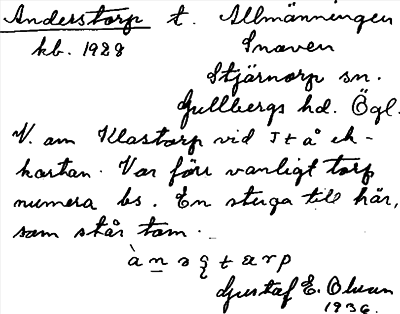 Anderstorp t. Allmänningen
kb. 1928 Snaven
Stjärnorp sn.
Gullbergs hd. Ögl.
V. om Klostorp vid J t å ek-
kartan. Var förr vanligt torp
numera bs. En stuga till här,
som står tom.
à n ə ʂ t æ r p
Gustaf E. Olson
1936.